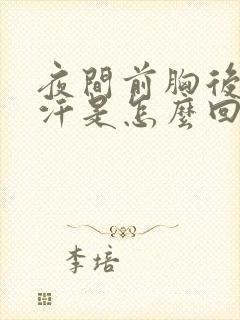 夜間前胸後
汗是怎麼回
李培